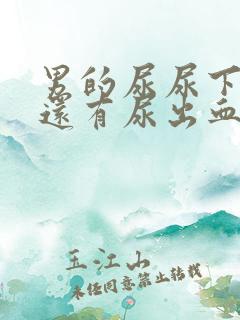 男的尿尿下
還有尿出血
玉江山
未经同意禁止转载